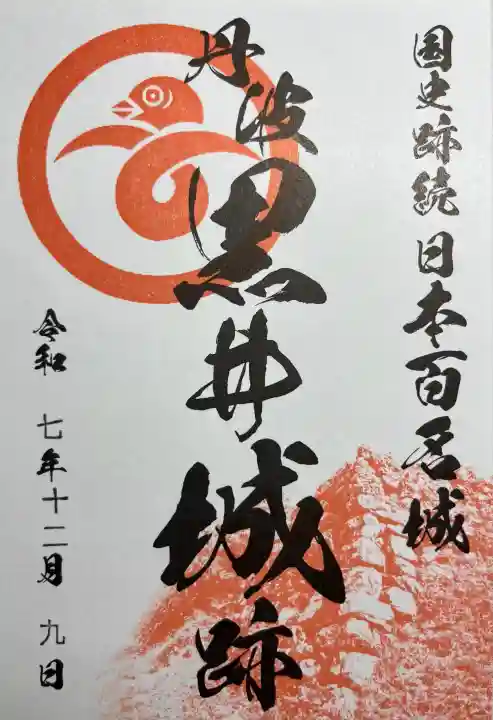 国史跡続日本百名城
丹波黒井城跡
令和 七年十二月 九日